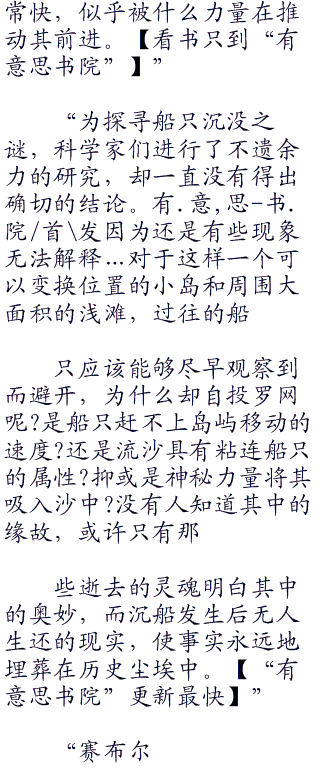 常快，似乎被什么力量在推
动其前进。【看书只到“有
意思书院”】”
“为探寻船只沉没之
谜，科学家们进行了不遗余
力的研究，却一直没有得出
确切的结论。有.意,思-书.
院/首\发因为还是有些现象
无法解释…对于这样一个可
以变换位置的小岛和周围大
面积的浅滩，过往的船
只应该能够尽早观察到
而避开，为什么却自投罗网
呢?是船只赶不上岛屿移动的
速度?还是流沙具有粘连船只
的属性?抑或是神秘力量将其
吸入沙中?没有人知道其中的
缘故，或许只有那
些逝去的灵魂明白其中
的奥妙，而沉船发生后无人
生还的现实，使事实永远地
埋葬在历史尘埃中。【“有
意思书院”更新最快】”
“赛布尔